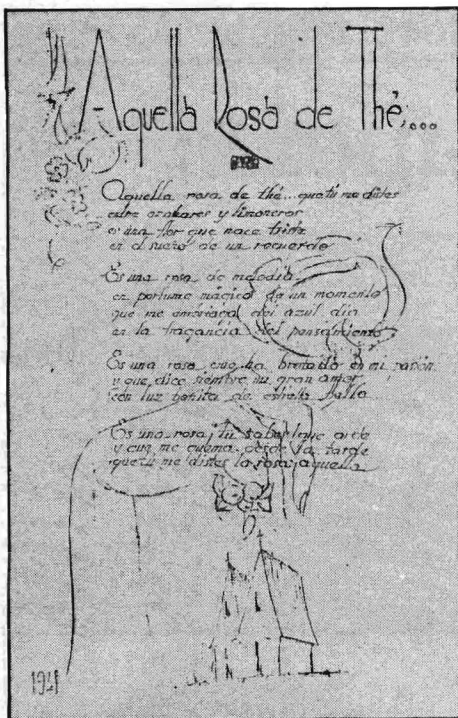 Aquella Rosa de Thé....
Aquella rosa de thé... que tú me distes
entre azahares y limoneros
es una flor que nace triste
en el sueño de un recuerdo
Es una rosa de melodía
en perfume mágico de un momento
que me embriaga del azul día
en la fragancia del pensamiento
Es una rosa que ha brotado en mi
y que dice siempre mi gran amor
con luz bonita de estrella bella
Es una rosa ¡tú sabes! que arde
y que me quema desde la tarde
que tú me distes la rosa aquella